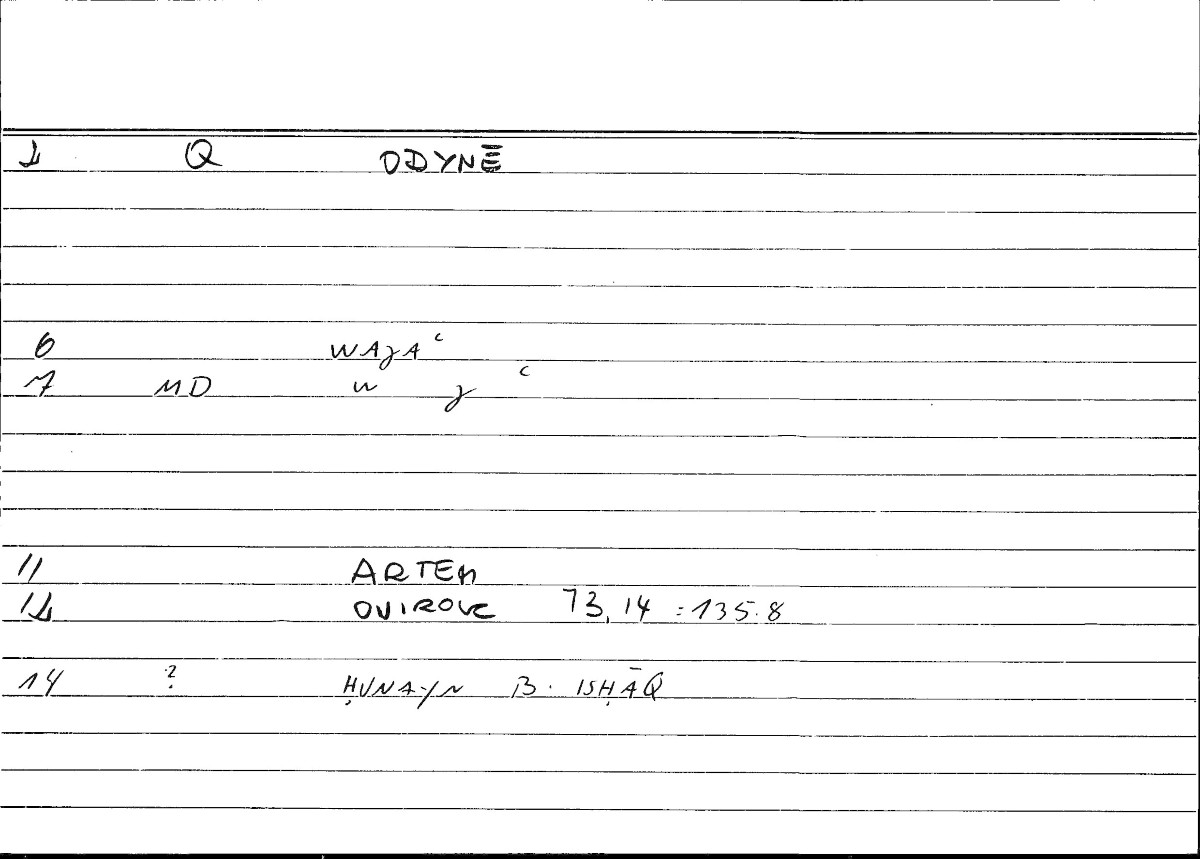 1 Q ODYNĒ
6 WAJAʿ
7 MD W J ʿ
11 ARTEM
12 OVIROVC 73,14 : 135.8
14 ? ḤUNAYN B. ISḤĀQ